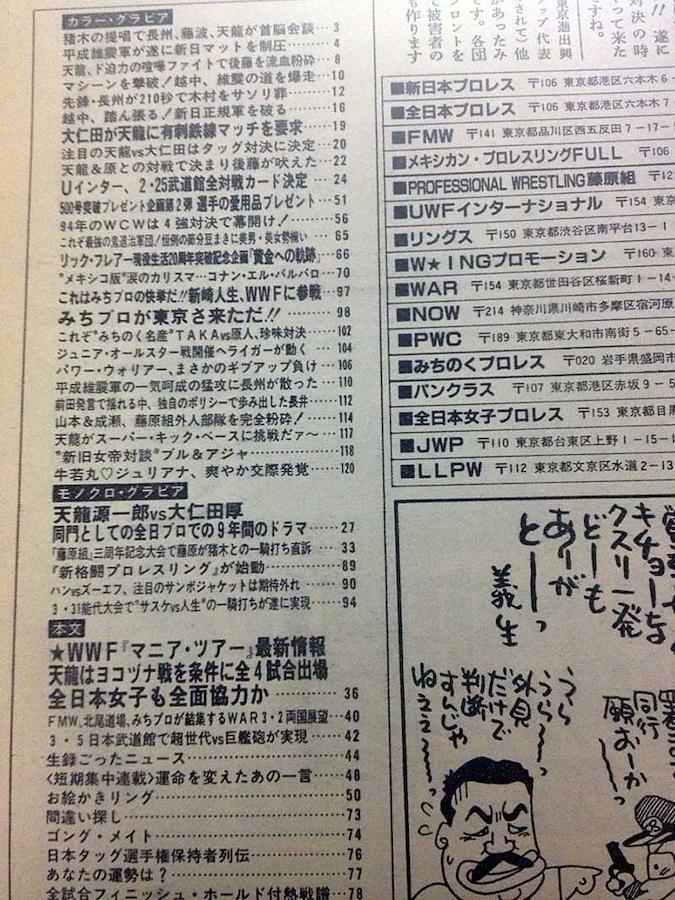 カラー・グラビア
猪木の提唱で長州、藤波、天龍が首脳会談…3
平成維震軍が遂に新日マットを制圧…………4
天龍、ド迫力の喧嘩ファイトで後藤を流血粉砕……8
マシーンを撃破！越中、維震の道を爆走……10
先鋒・長州が210秒で木村をサソリ罪………12
越中、踏ん張る！新日正規軍を破る…………16
大仁田が天龍に有刺鉄線マッチを要求………19
注目の天龍vs大仁田はタッグ対決に決定…20
天龍＆原との対戦で決まり後藤が吠えた……22
Uインター、2・25武道館全対戦カード決定…24
500号突破プレゼント企画第2弾 選手の愛用品プレゼント…51
94年のWCWは4強対決で幕開け！…………56
これぞ最強の鬼退治軍団！恒例の節分豆まきに美男・美女勢揃い…65
リック・フレアー現役生活20周年突破記念企画「黄金への軌跡」…66
“メキシコ版”涙のカリスマ…コナン・エル・バルバロ…70
これはみちプロの快挙だ!!新崎人生、WWFに参戦…97
みちプロが東京さ来ただ!!………………98
これぞ“みちのく名産”TAKAvs原人、珍味対決…102
ジュニア・オールスター戦開催へライガーが動く…104
パワー・ウォリアー、まさかのギブアップ負け…106
平成維震軍の一気呵成の猛攻に長州が散った…110
前田発言で揺れる中、独自のポリシーで歩み出した長井…112
山本＆成瀬、藤原組外人部隊を完全粉砕！…114
天龍がスーパー・キック・ベースに挑戦だァ～…117
“新旧女帝対談”ブル＆アジャ………………118
牛若丸♡ジュリアナ、爽やか交際発覚………120
モノクロ・グラビア
天龍源一郎vs大仁田厚
同門としての全日プロでの9年間のドラマ……27
『藤原組』三周年記念大会で藤原が猪木との一騎打ち直訴…33
『新格闘プロレスリング』が始動………………89
ハンvsズーエフ、注目のサンボジャケットは期待外れ…90
3・31能代大会で“サスケvs人生”の一騎打ちが遂に実現…94
本文
★WWF『マニア・ツアー』最新情報
天龍はヨコヅナ戦を条件に全4試合出場
全日本女子も全面協力か……………36
FMW、北尾道場、みちプロが結集するWAR3・2両国展望…40
3・5日本武道館で超世代vs巨艦砲が実現…42
生録ごったニュース……………………44
〈短期集中連載〉運命を変えたあの一言……48
お絵かきリング…………………………50
間違い探し………………………………73
ゴング・メイト…………………………74
日本タッグ選手権保持者列伝…………76
あなたの運勢は？………………………77
全試合フィニッシュ・ホールド付熱戦譜…78
!! 遂に
対決の時
って来た
すね。
東京進出興
ップ代表
されて）他
です。各団
があったみ
フロントを
て被害者の
も作ります
■新日本プロレス 〒106 東京都港区六本木6－
■全日本プロレス 〒106 東京都港区六本木7
■FMW 〒141 東京都品川区西五反田7－17－
■メキシカン・プロレスリングFULL 〒106
■PROFESSIONAL WRESTLING藤原組 〒12
■UWFインターナショナル 〒154 東京
■リングス 〒150 東京都渋谷区南平台13－1
■W★INGプロモーション 〒160 東
■WAR 〒154 東京都世田谷区桜新町1－14－
■NOW 〒214 神奈川県川崎市多摩区宿河原
■PWC 〒189 東京都東大和市南街5－65－
■みちのくプロレス 〒020 岩手県盛岡市
■パンクラス 〒107 東京都港区赤坂9－5
■全日本女子プロレス 〒153 東京都目黒
■JWP 〒110 東京都台東区上野1－15－1
■LLPW 〒112 東京都文京区水道2－13
キチョーな
クスリ一発
どーも
ありが
とーーっ
義生
うら
うら〜っ
外見
だけで
判断
すんじゃ
ねぇぇ〜っ
同行
願おーかっ